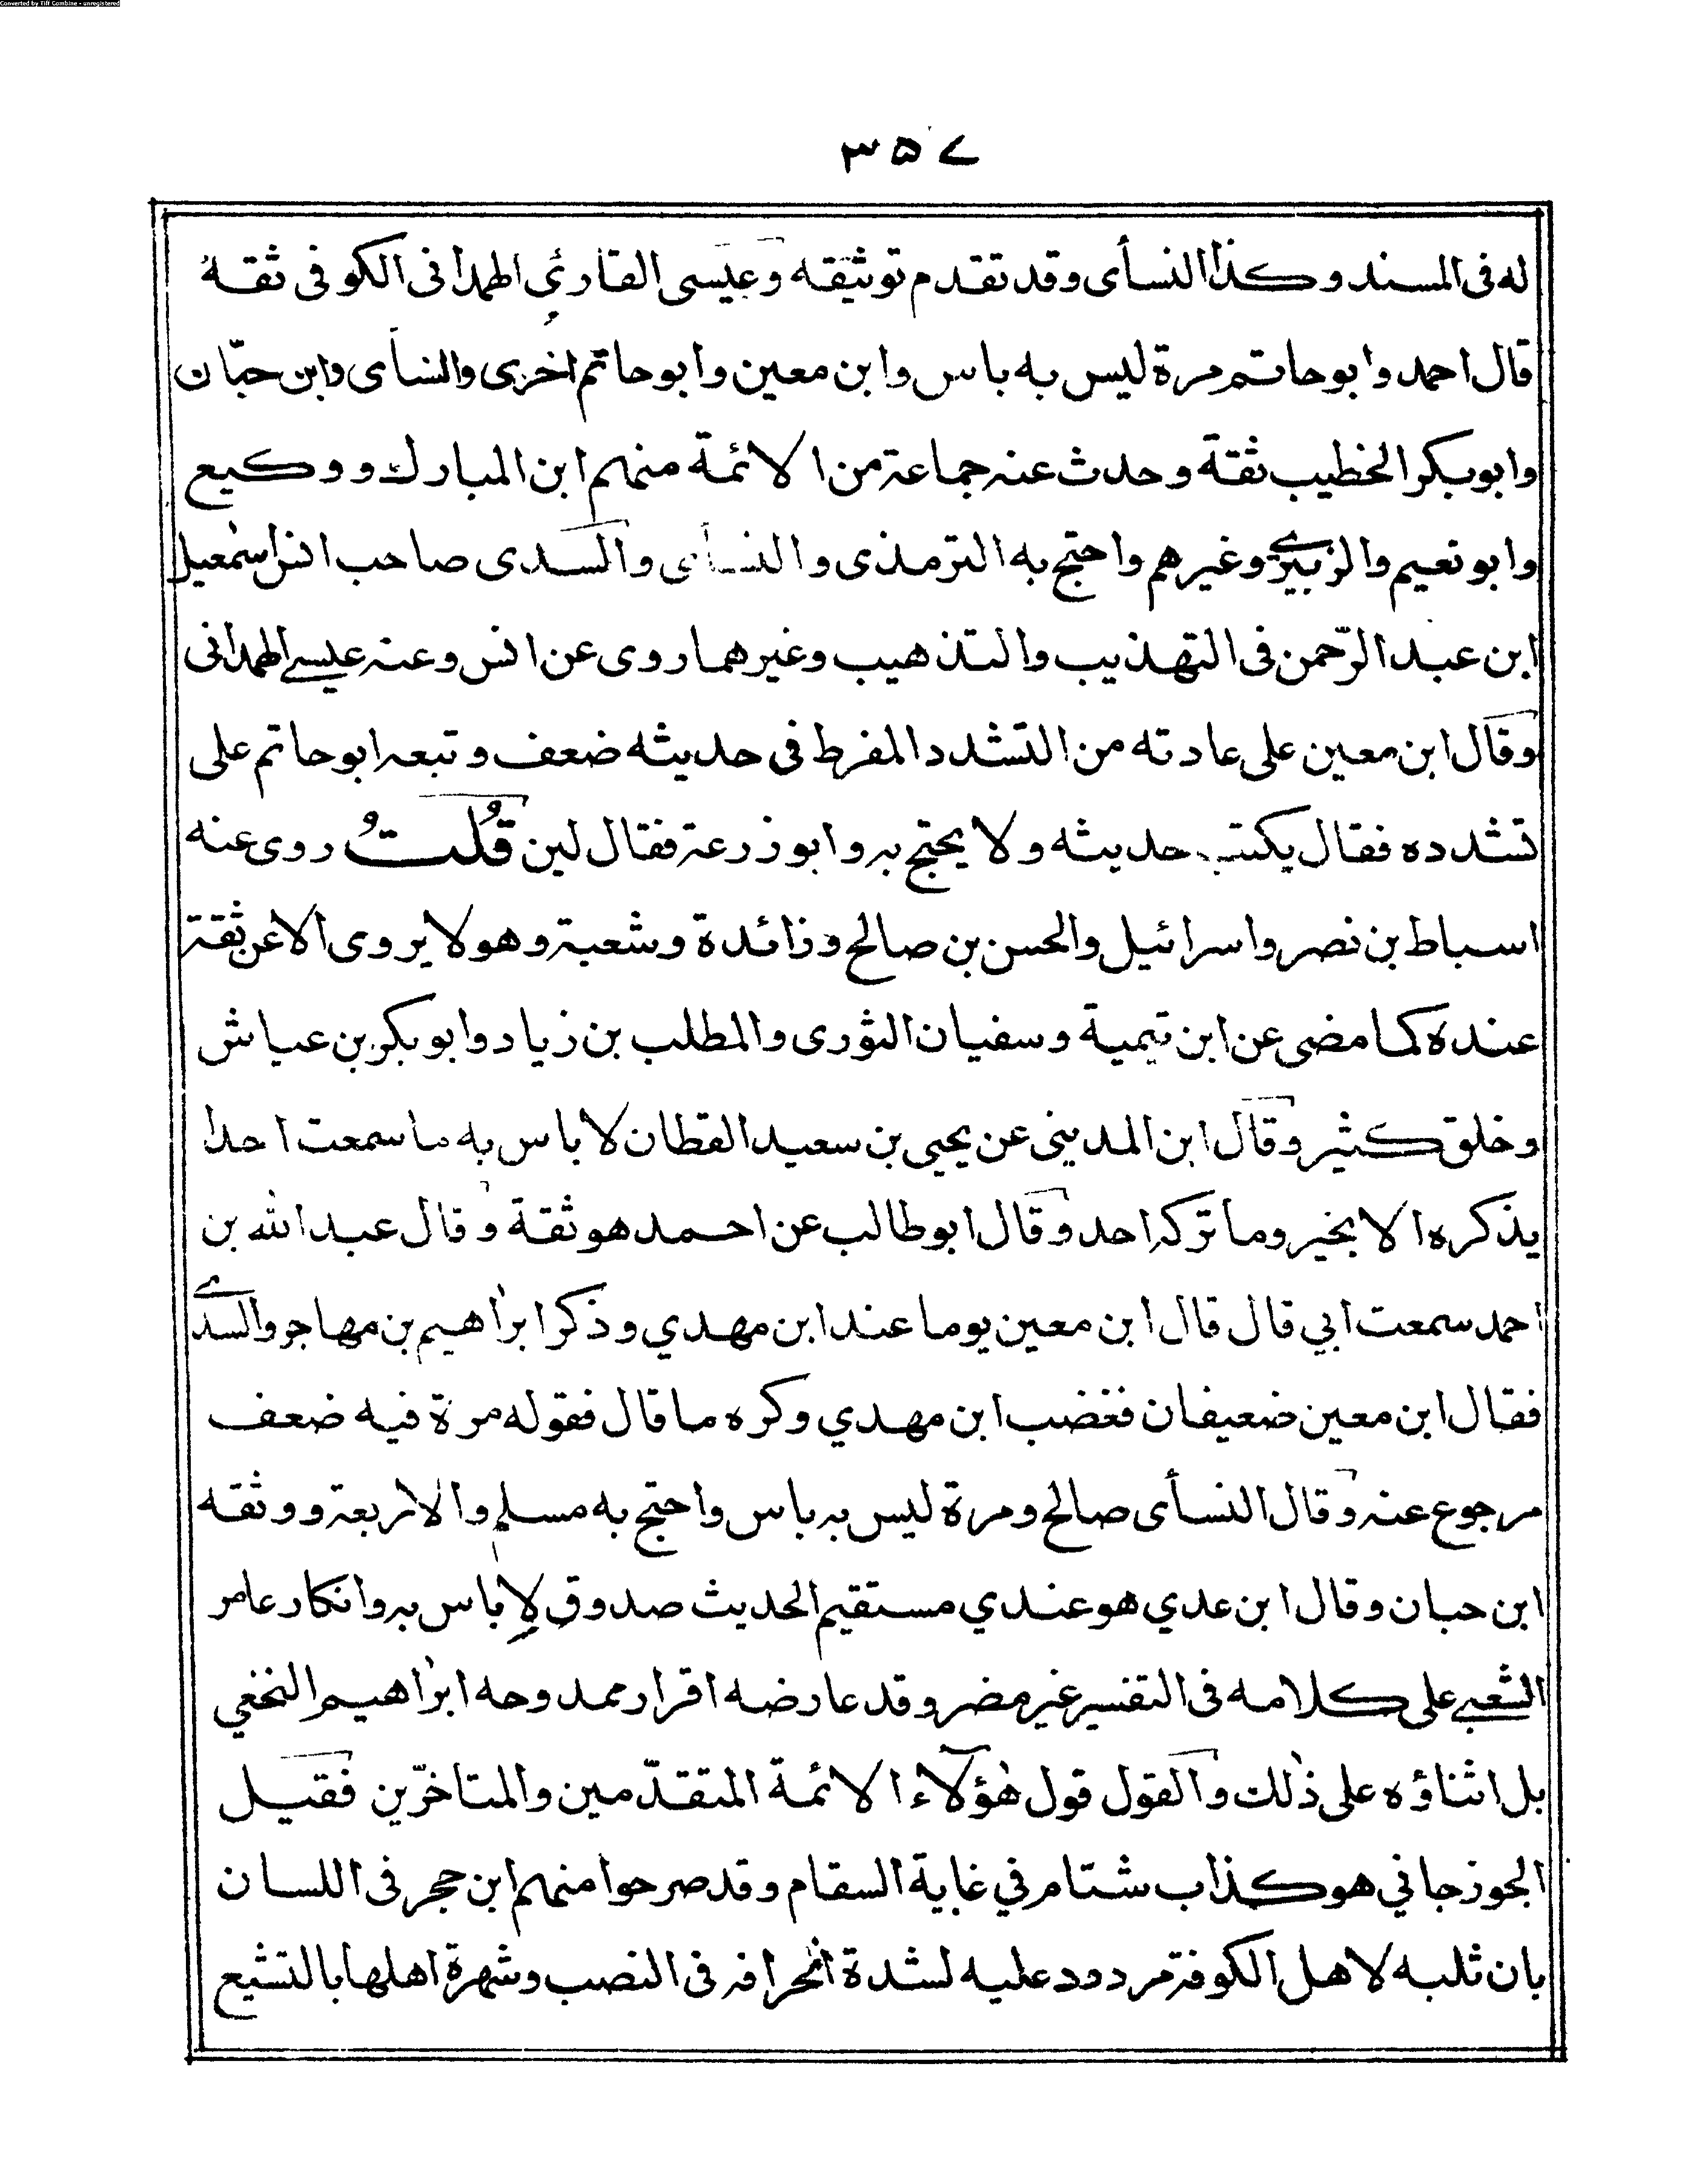 Converted by Tiff Combine - unregistered
۳۵۷
له فی المسند و کذا النسأی وقد تقدم توثیقه وعیسی القارئي الهمدانی الکوفی ثقة
قال احمد وابو حاتم مرة لیس به باس وابن معین وابو حاتم اخری والنسأی وابن حبّان
وابوبکر الخطیب ثقة وحدث عنه جماعة من الائمة منهم ابن المبارك و وکیع
وابو نعیم والزبیری وغیرهم واحتج به الترمذی والنسأی والسدی صاحب انس اسمٰعیل
ابن عبد الرّحمن فی التهذیب والتذهیب وغیرهما روی عن انس وعنه عیسے الهمدانی
وقال ابن معین علی عادته من التشدد المفرط فی حدیثه ضعف وتبعه ابو حاتم علی
تشدده فقال یکتب حدیثه ولا یحتج به وابو زرعة فقال لین قُلتُ روی عنه
اسباط بن نصر واسرائیل والحسن بن صالح وزائدة وشعبة وهو لا یروی الا عن ثقة
عنده کما مضی عن ابن تیمیة وسفیان الثوری والمطلب بن زیاد وابو بکر بن عیاش
وخلق کثیر وقال ابن المدینی عن یحیی بن سعید القطان لا باس به ما سمعت احدا
یذکره الا بخیر وما ترکه احد وقال ابو طالب عن احمد هو ثقة وقال عبد الله بن
احمد سمعت ابي قال قال ابن معین یوما عند ابن مهدي وذکر ابراهیم بن مهاجر والسدے
فقال ابن معین ضعیفان فغضب ابن مهدي وکره ما قال فقوله مرة فیه ضعف
مرجوع عنه وقال النسأی صالح ومرة لیس به باس واحتج به مسلم والاربعة ووثقه
ابن حبان وقال ابن عدي هو عندي مستقیم الحدیث صدوق لا باس به وانکار عامر
الشعبے علی کلامه فی التفسیر غیر مضر وقد عارضه اقرار ممدوحه ابراهیم النخعي
بل اثناؤه علی ذٰلك والقول قول هٰؤلآء الائمة المتقدّمین والمتاخرّین فقیل
الجوزجاني هو کذاب شتام في غایة السقام وقد صرحوا منهم ابن حجر فی اللسان
بان ثلبه لاهل الکوفة مردود علیه لشدة انحرافه فی النصب وشهرة اهلها بالتشیع